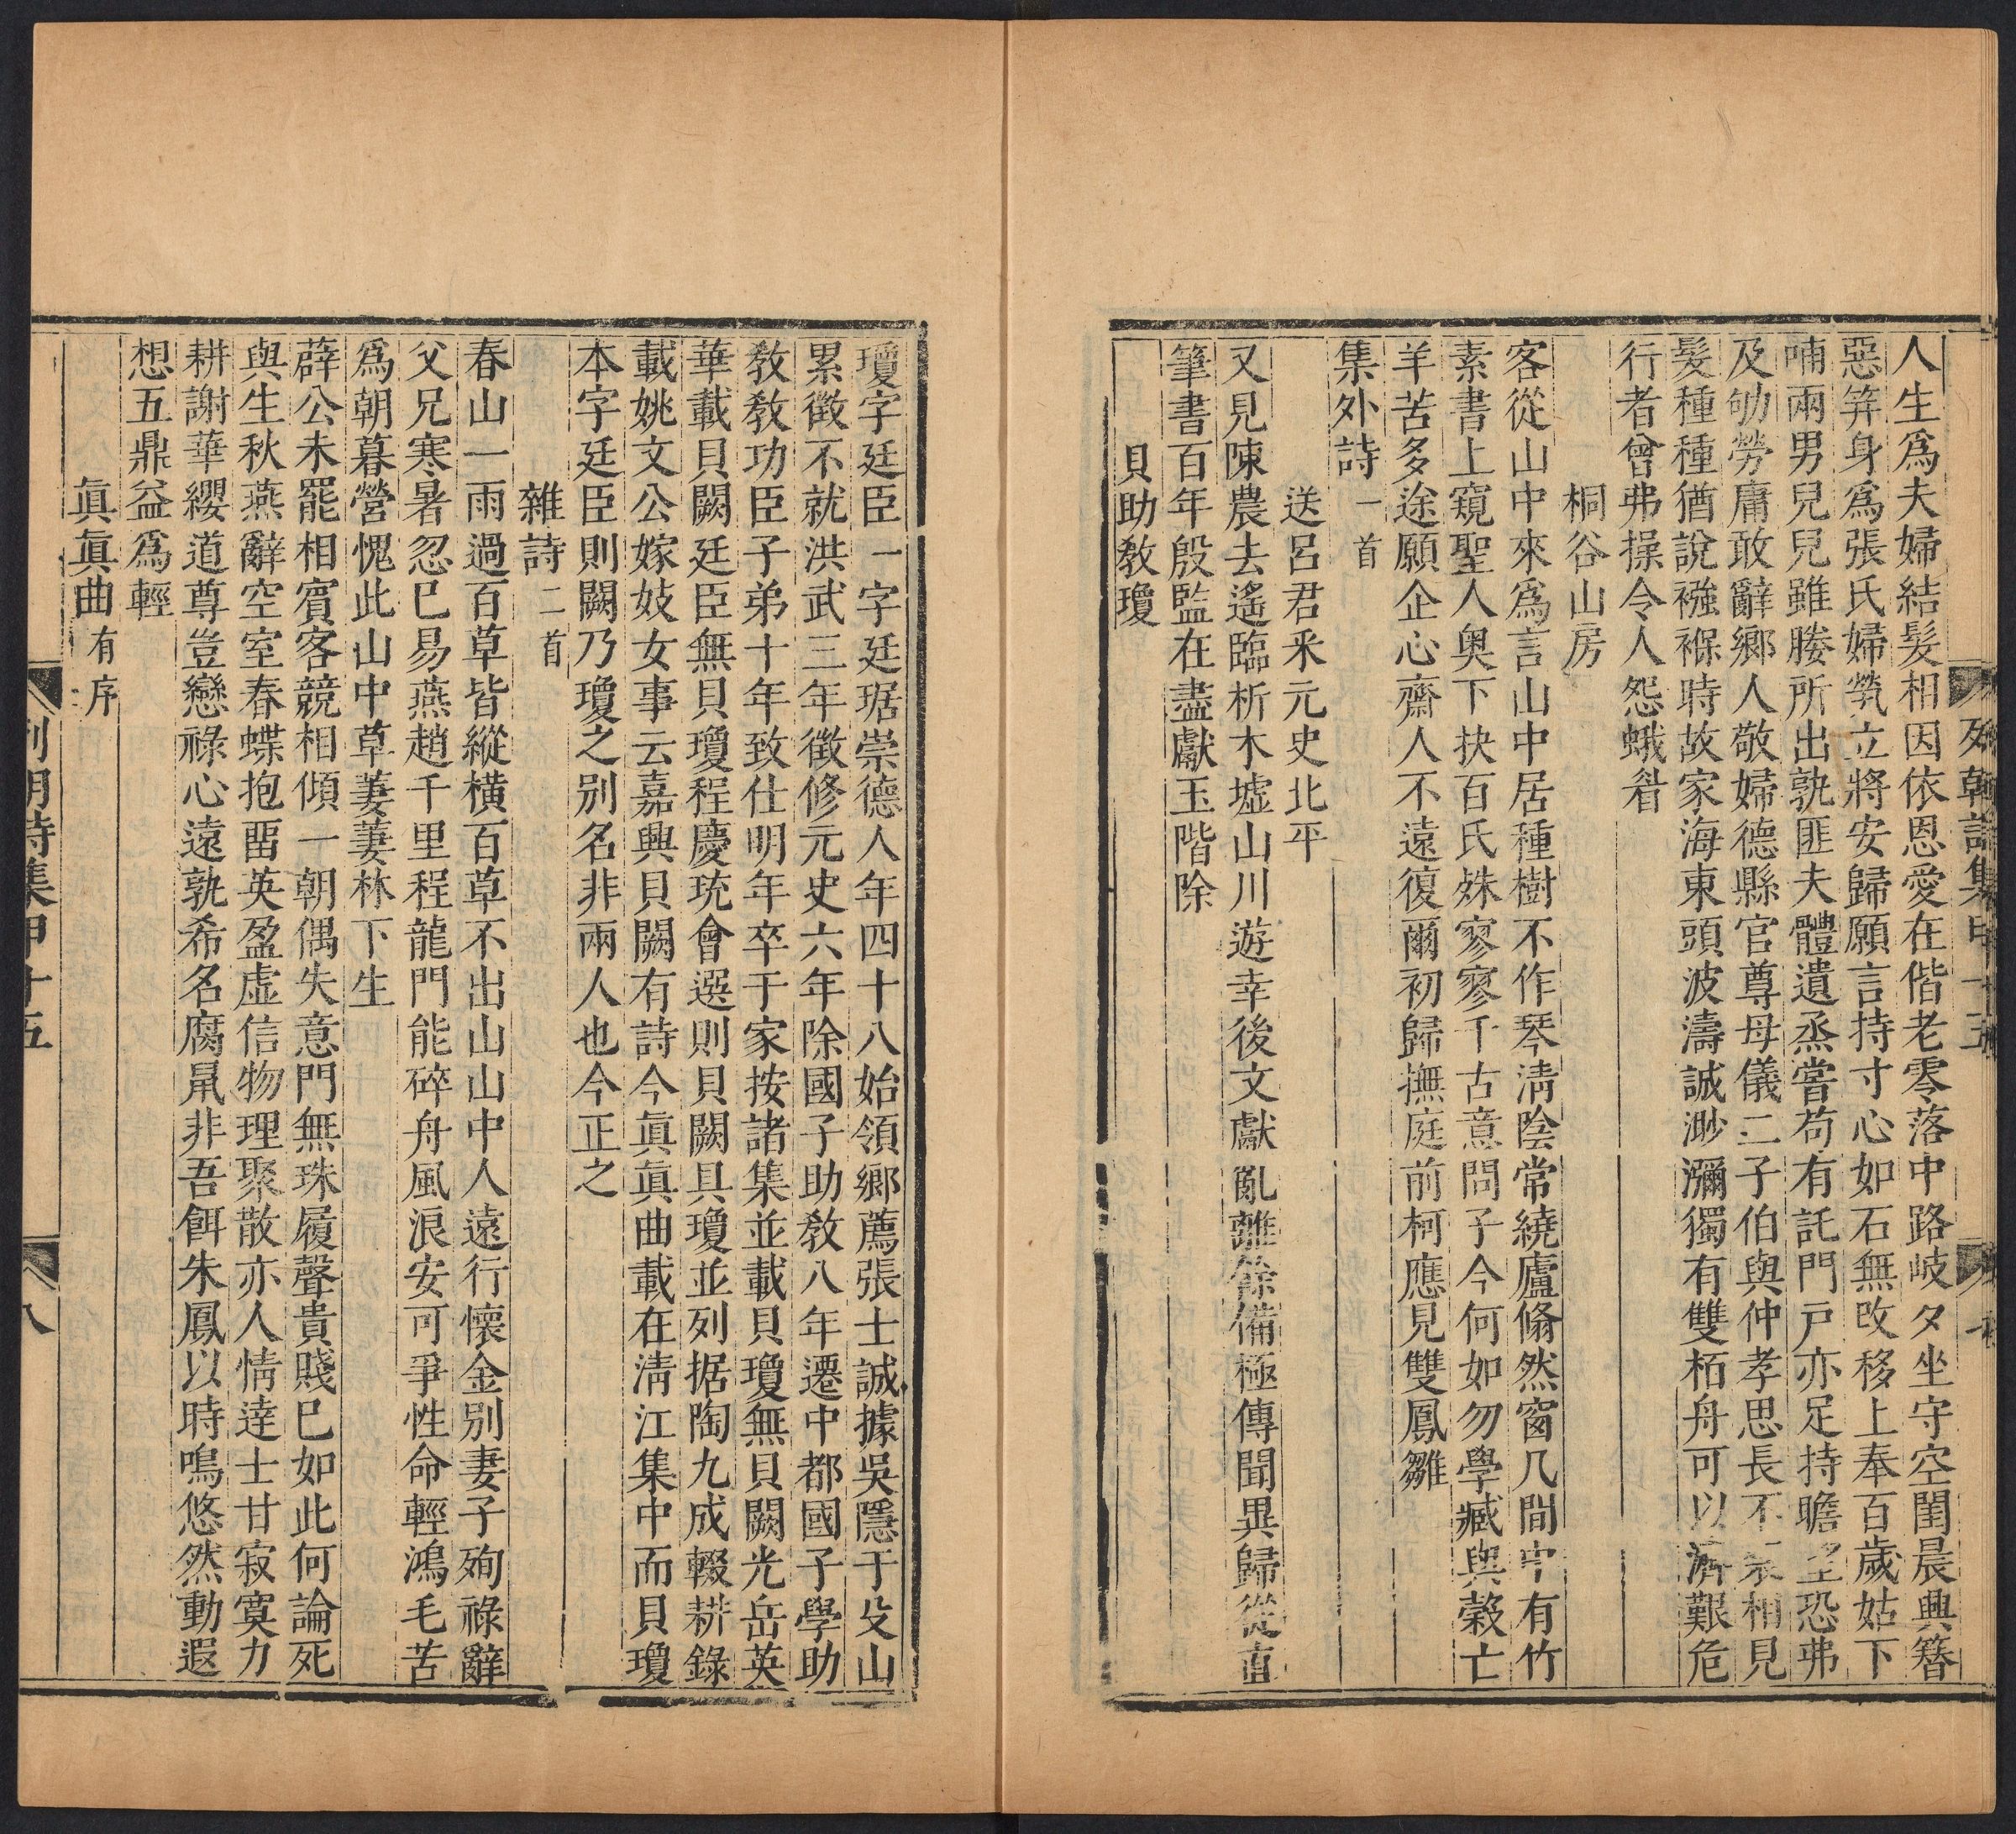 列朝詩集甲十五
人生爲夫婦結髮相因依恩愛在偕老零落中路岐夕坐守空閨晨興簪
惡筓身爲張氏婦煢立將安歸願言持寸心如石無改移上奉百歲姑下
喃兩男兒兒雖媵所出孰匪夫體遺烝嘗苟有託門戸亦足持瞻望恐弗
及劬勞庸敢辭鄉人敬婦德縣官尊母儀二子伯與仲孝思長不衰相見
髮種種猶說襁褓時故家海東頭波濤誠渺瀰獨有雙栢舟可以濟艱危
行者曾弗操令人怨蛾眉
桐谷山房
客從山中來爲言山中居種樹不作琴淸陰常繞廬翛然窗几間中有竹
素書上窺聖人奥下抉百氏姝寥寥千古意問子今何如勿學臧與榖亡
羊苦多途願企心齋人不遠復爾初歸撫庭前柯應見雙鳳雛
集外詩一首
送呂君釆元史北平
又見陳農去遙臨析木墟山川遊幸後文獻亂離餘備極傳聞異歸從直
筆書百年殷監在盡獻玉階除
貝助敎瓊
瓊字廷臣一字廷琚崇德人年四十八始領鄉薦張士誠據吳隱于殳山
累徵不就洪武三年徵修元史六年除國子助敎八年遷中都國子學助
敎敎功臣子弟十年致仕明年卒于家按諸集並載貝瓊無貝闕光岳英
華載貝闕廷臣無貝瓊程慶珫會選則貝闕具瓊並列据陶九成輟耕錄
載姚文公嫁妓女事云嘉興貝闕有詩今眞眞曲載在淸江集中而貝瓊
本字廷臣則闕乃瓊之别名非兩人也今正之
雜詩二首
春山一雨過百草皆縱橫百草不出山山中人遠行懷金别妻子殉祿辭
父兄寒暑忽已易燕趙千里程龍門能碎舟風浪安可爭性命輕鴻毛苦
爲朝暮營愧此山中草萋萋林下生
薜公未罷相賓客競相傾一朝偶失意門無珠履聲貴賤已如此何論死
與生秋燕辭空室春蝶抱畱英盈虛信物理聚散亦人情達士甘寂寞力
耕謝華纓道尊豈戀祿心遠孰希名腐鼠非吾餌朱鳳以時鳴悠然動遐
想五鼎益爲輕
眞眞曲有序
列朝詩集甲十五
八